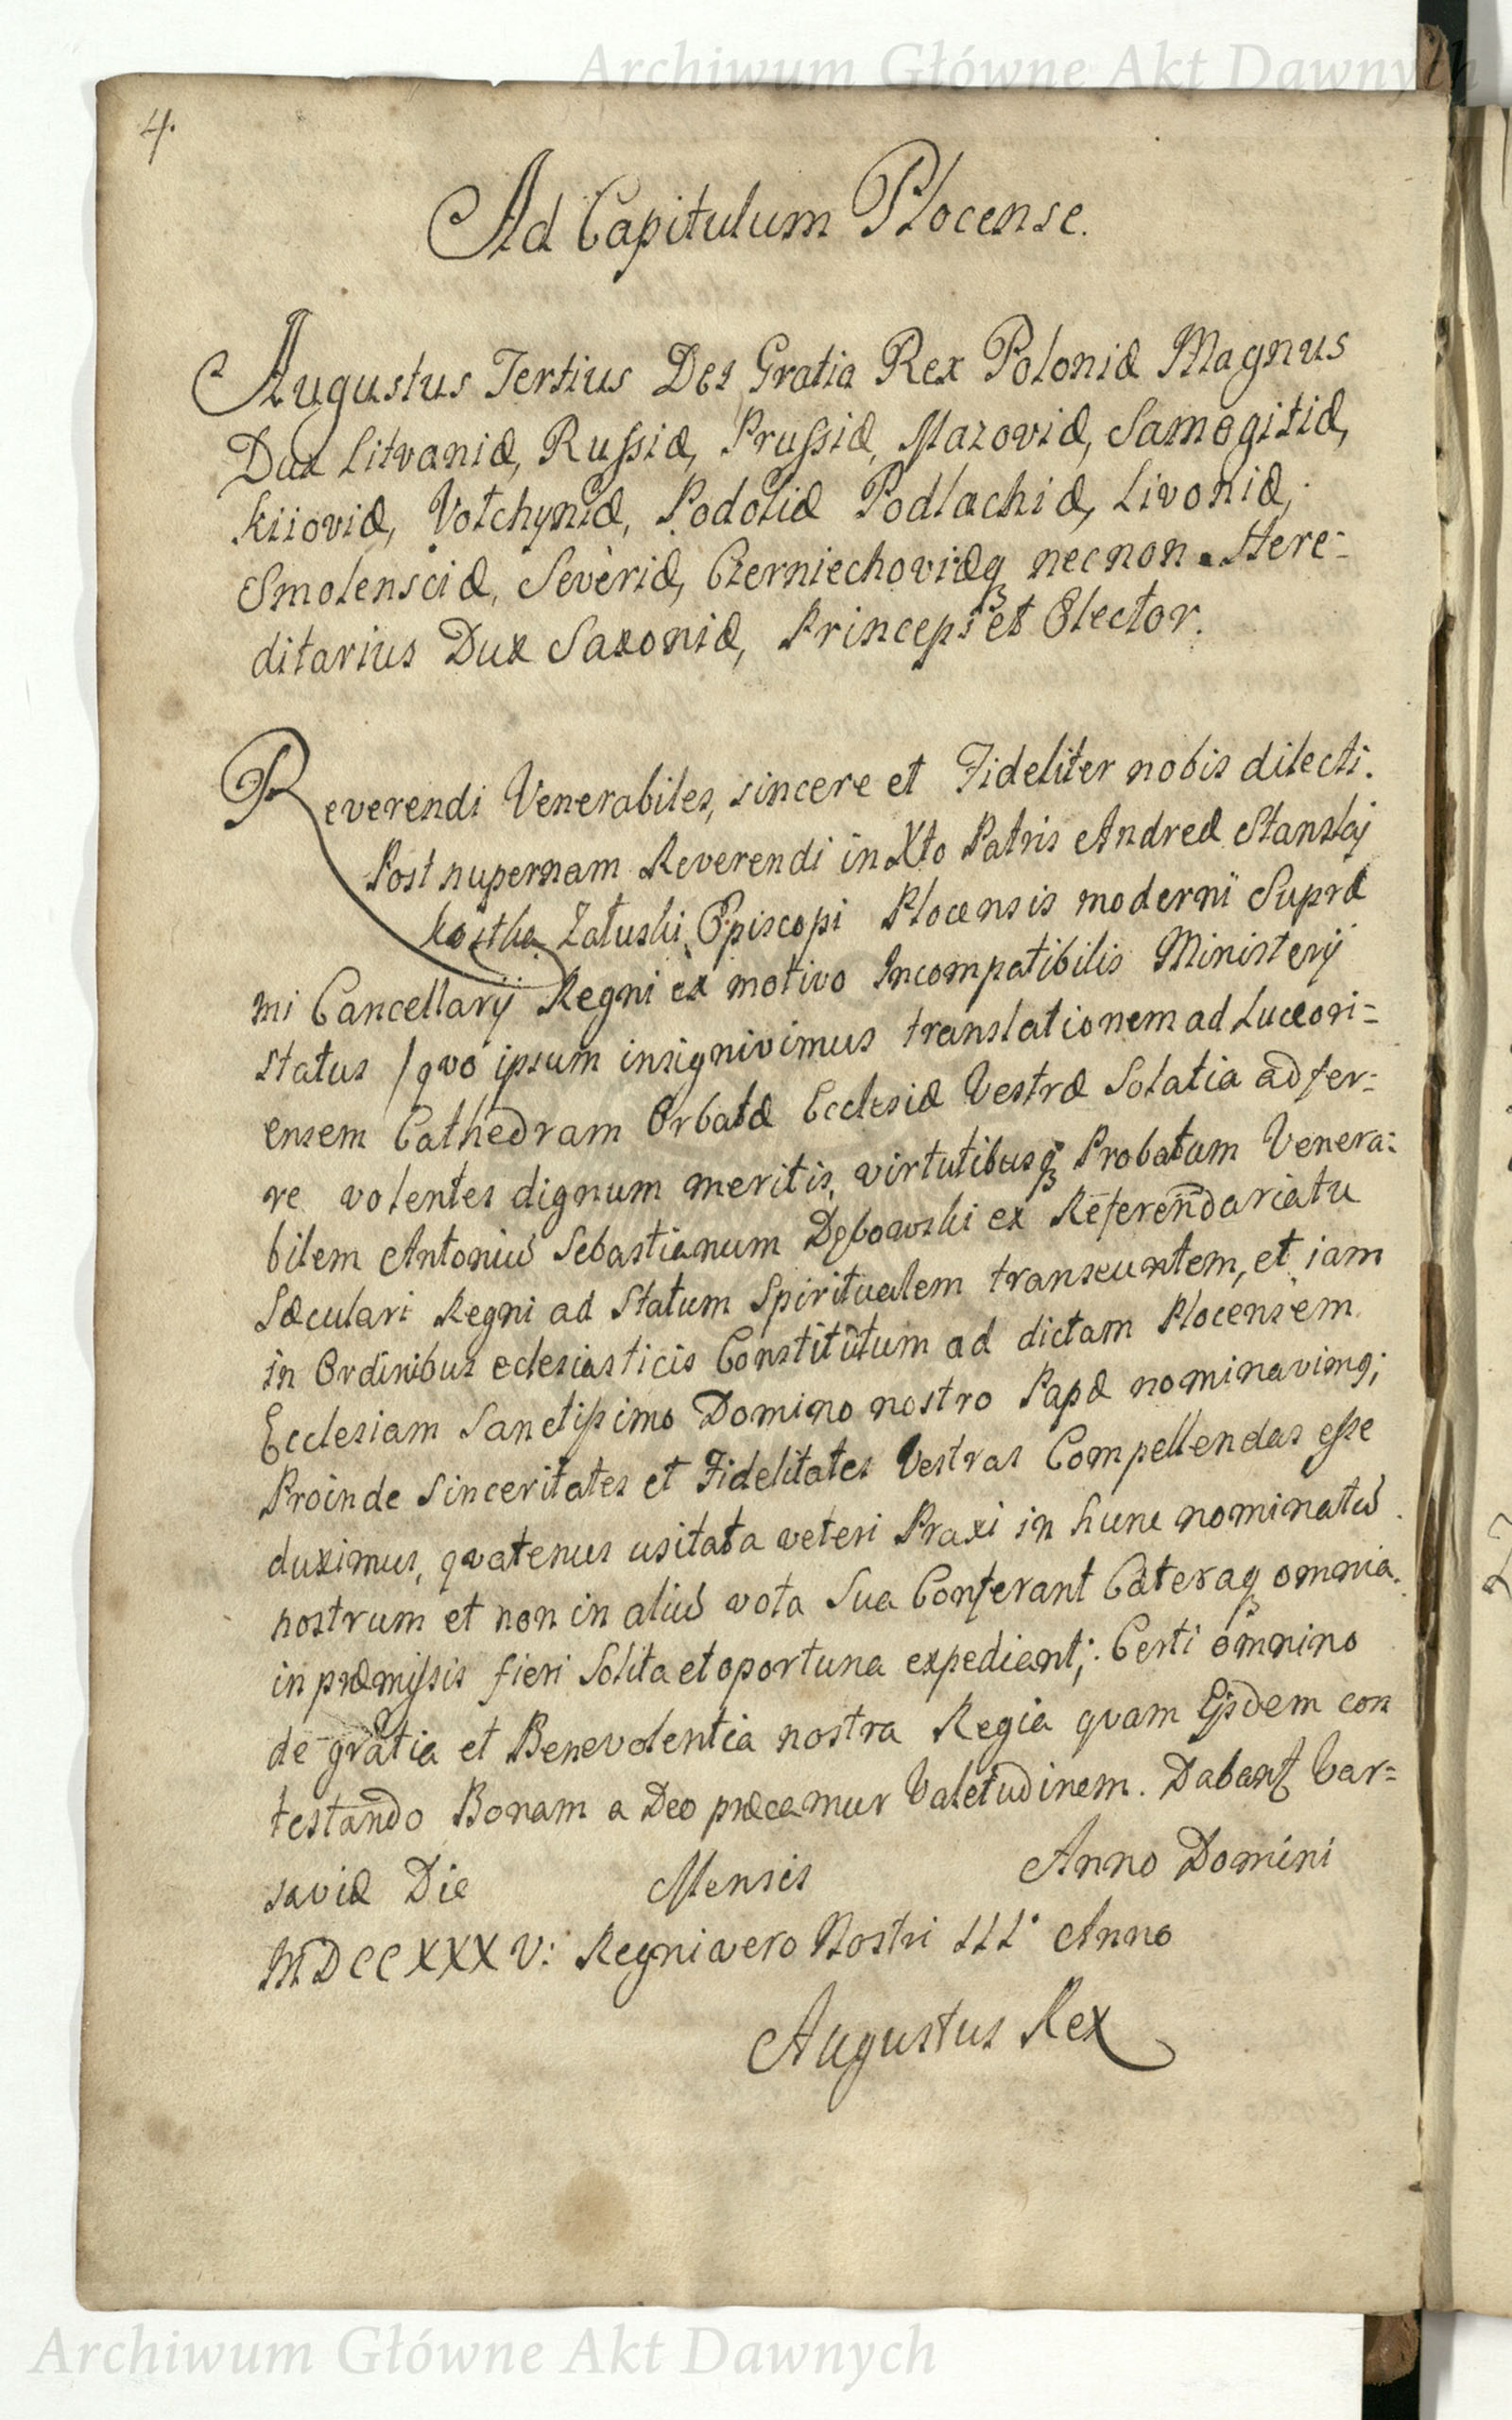 Archiwum Główne Akt Dawnych
4.
Ad Capitulum Plocense.
Augustus Tertius Dei Gratia Rex Poloniæ Magnus
Dux Litvaniæ, Rufsiæ, Prufsiæ, Mazoviæ, Samogitiæ,
Kiioviæ, Volchyniæ, Podoliæ Podlachiæ, Livoniæ,
Smolensciæ, Severiæ, Czerniechoviæq necnon Here=
ditarius Dux Saxoniæ, Princeps et Elector.
Reverendi Venerabiles, sincere et Fideliter nobis dilecti.
Post nupernam Reverendi in Xto Patris Andreæ Stanslaj
Kostka Załuski Episcopi Plocensis moderni Supre
mi Cancellarij Regni ex motivo Incompatibilis Ministerij
status /qvo ipsum insignivimus translationem ad Luceori=
ensem Cathedram Orbatæ Ecclesiæ Vestræ Solatia adfer=
re volentes dignum meritis, virtutibusq Probatum Venera=
bilem Antoniũ Sebastianum Dębowski ex Referendariatu
Sæculari Regni ad Statum Spiritualem transeuntem, et iam
in Ordinibus eclesiasticis Constitutum ad dictam Plocensem
Ecclesiam Sanctifsimo Domino nostro Papæ nominavimq;
Proinde Sinceritates et Fidelitates Vestras Compellendas efse
duximus, qvatenus usitata veteri Praxi in hunc nominatũ
nostrum et non in aliũ vota Sua Conferant Cæteraq omnia
in præmifsis fieri Solita et oportuna expediant; Certi omnino
de gratia et Benevolentia nostra Regia qvam Ijsdem con
testando Bonam a Deo præcamur Valetudinem. Dabant Var=
saviæ Die Mensis Anno Domini
MDCCXXXV: Regni vero Nostri III° Anno
Augustus Rex
Archiwum Główne Akt Dawnych